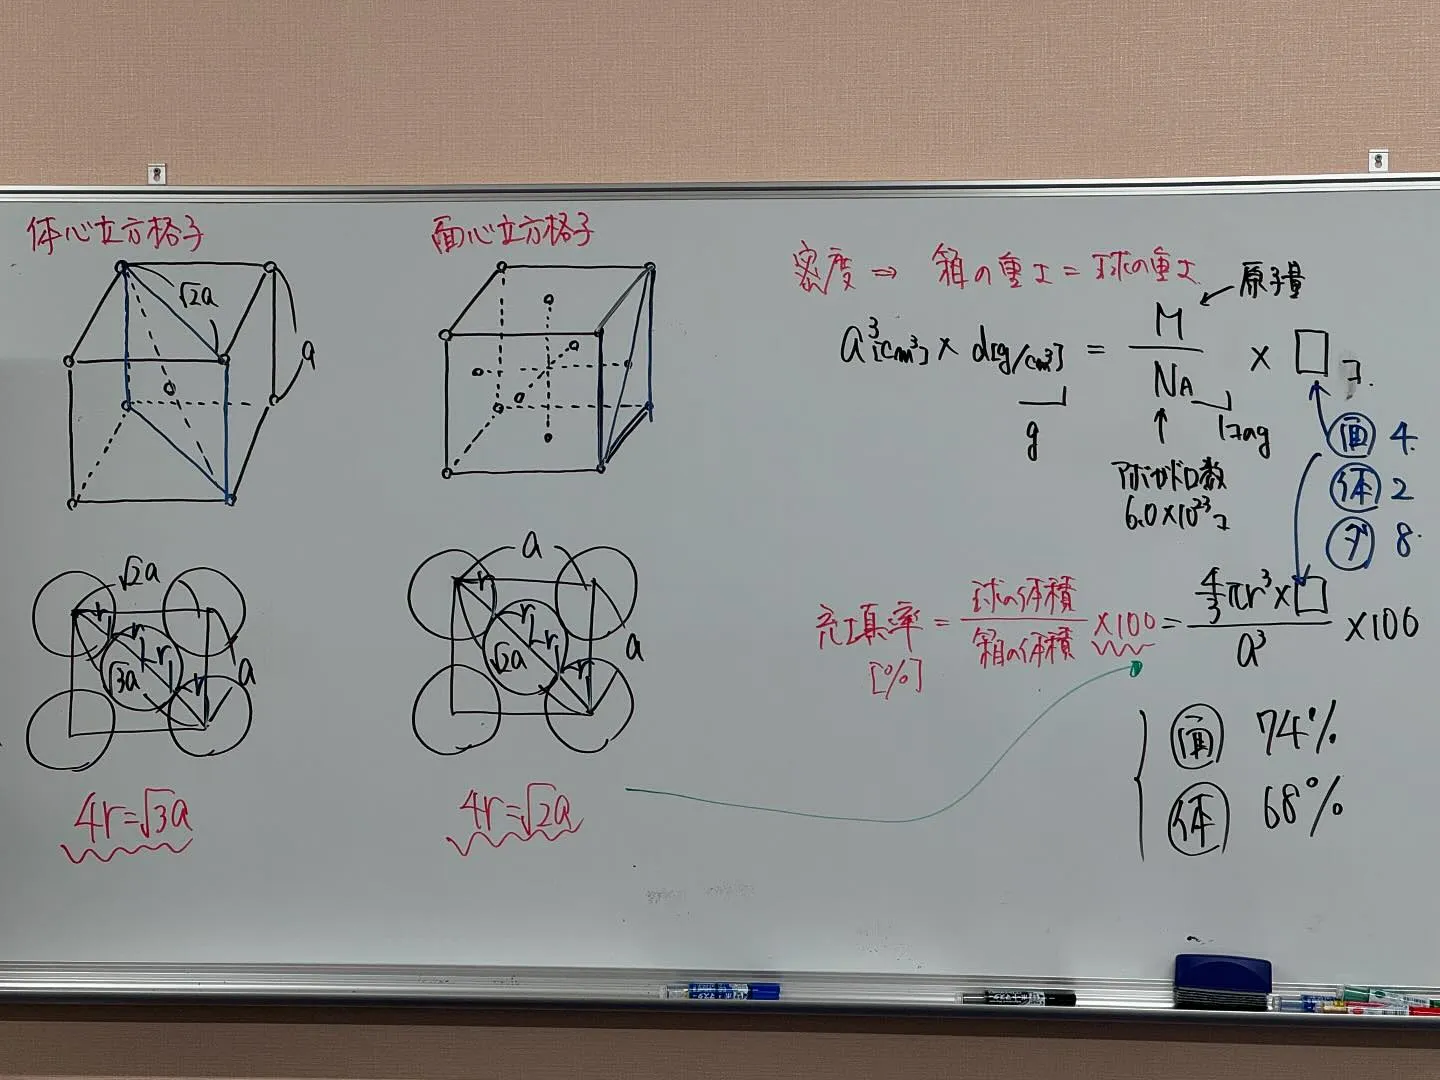 体心立方格子
√2a
a
√2a
r
r
r
r
√3a
a
4r=√3a
面心立方格子
a
r
r
r
r
√2a
a
4r=√2a
密度 ⇒ 箱の重さ=球の重さ
原子量
a³[cm³]×d[g/cm³] = M/NA × □コ
g
1コのg
アボガドロ数
6.0×10²³コ
面 4
体 2
ダ 8
充填率[%] = 球の体積/箱の体積 ×100 = 4/3πr³×□/a³ ×100
面 74%
体 68%